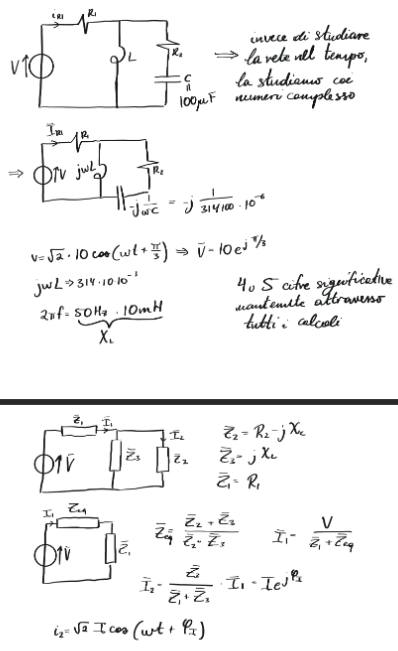 i_R1 R_1
V L R_2 C 100μF
⇒ invece di studiare
la rete nel tempo,
la studiamo coi
numeri complesso
I_R1 R_1
⇒ V jωL R_2
-j 1/ωC = -j 1/314·100·10^-6
v = √2 · 10 cos(ωt + π/3) ⇒ V̄ - 10 e^jπ/3
jωL ⇒ 314·10·10^-3
2πf = 50Hz · 10mH
X_L
4 o 5 cifre significative
mantenute attraverso
tutti i calcoli
Z̄_1 Ī_1 Ī_2
V̄ Z̄_3 Z̄_2
Z̄_2 = R_2 - jX_c
Z̄_3 = jX_L
Z̄_1 = R_1
Ī_1 Z̄_eq
V̄ Z̄_1
Z̄_eq = Z̄_2 + Z̄_3 / Z̄_2 - Z̄_3 Ī_1 - V / Z̄_1 + Z̄_eq
Ī_2 - Z̄_3 / Z̄_1 + Z̄_3 · Ī_1 - I e^jφ_I
i_2 = √2 I cos(ωt + φ_I)